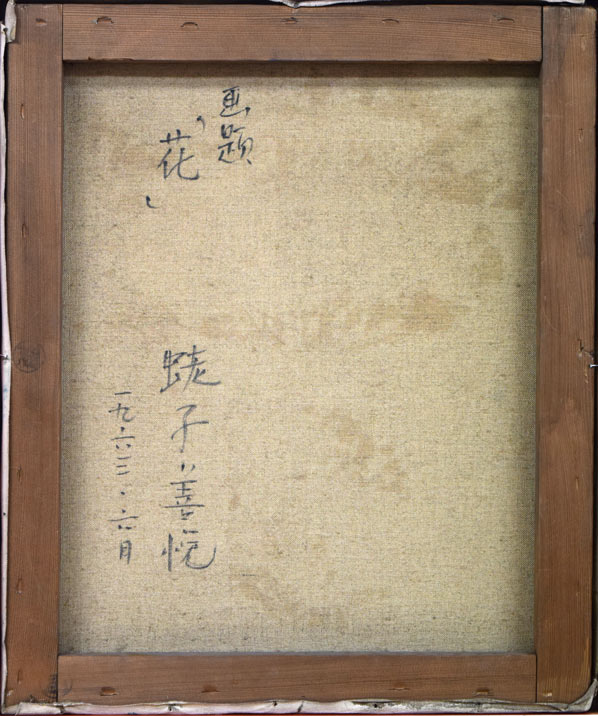 画題
「花」
蛯子善悦
一九六三・六月